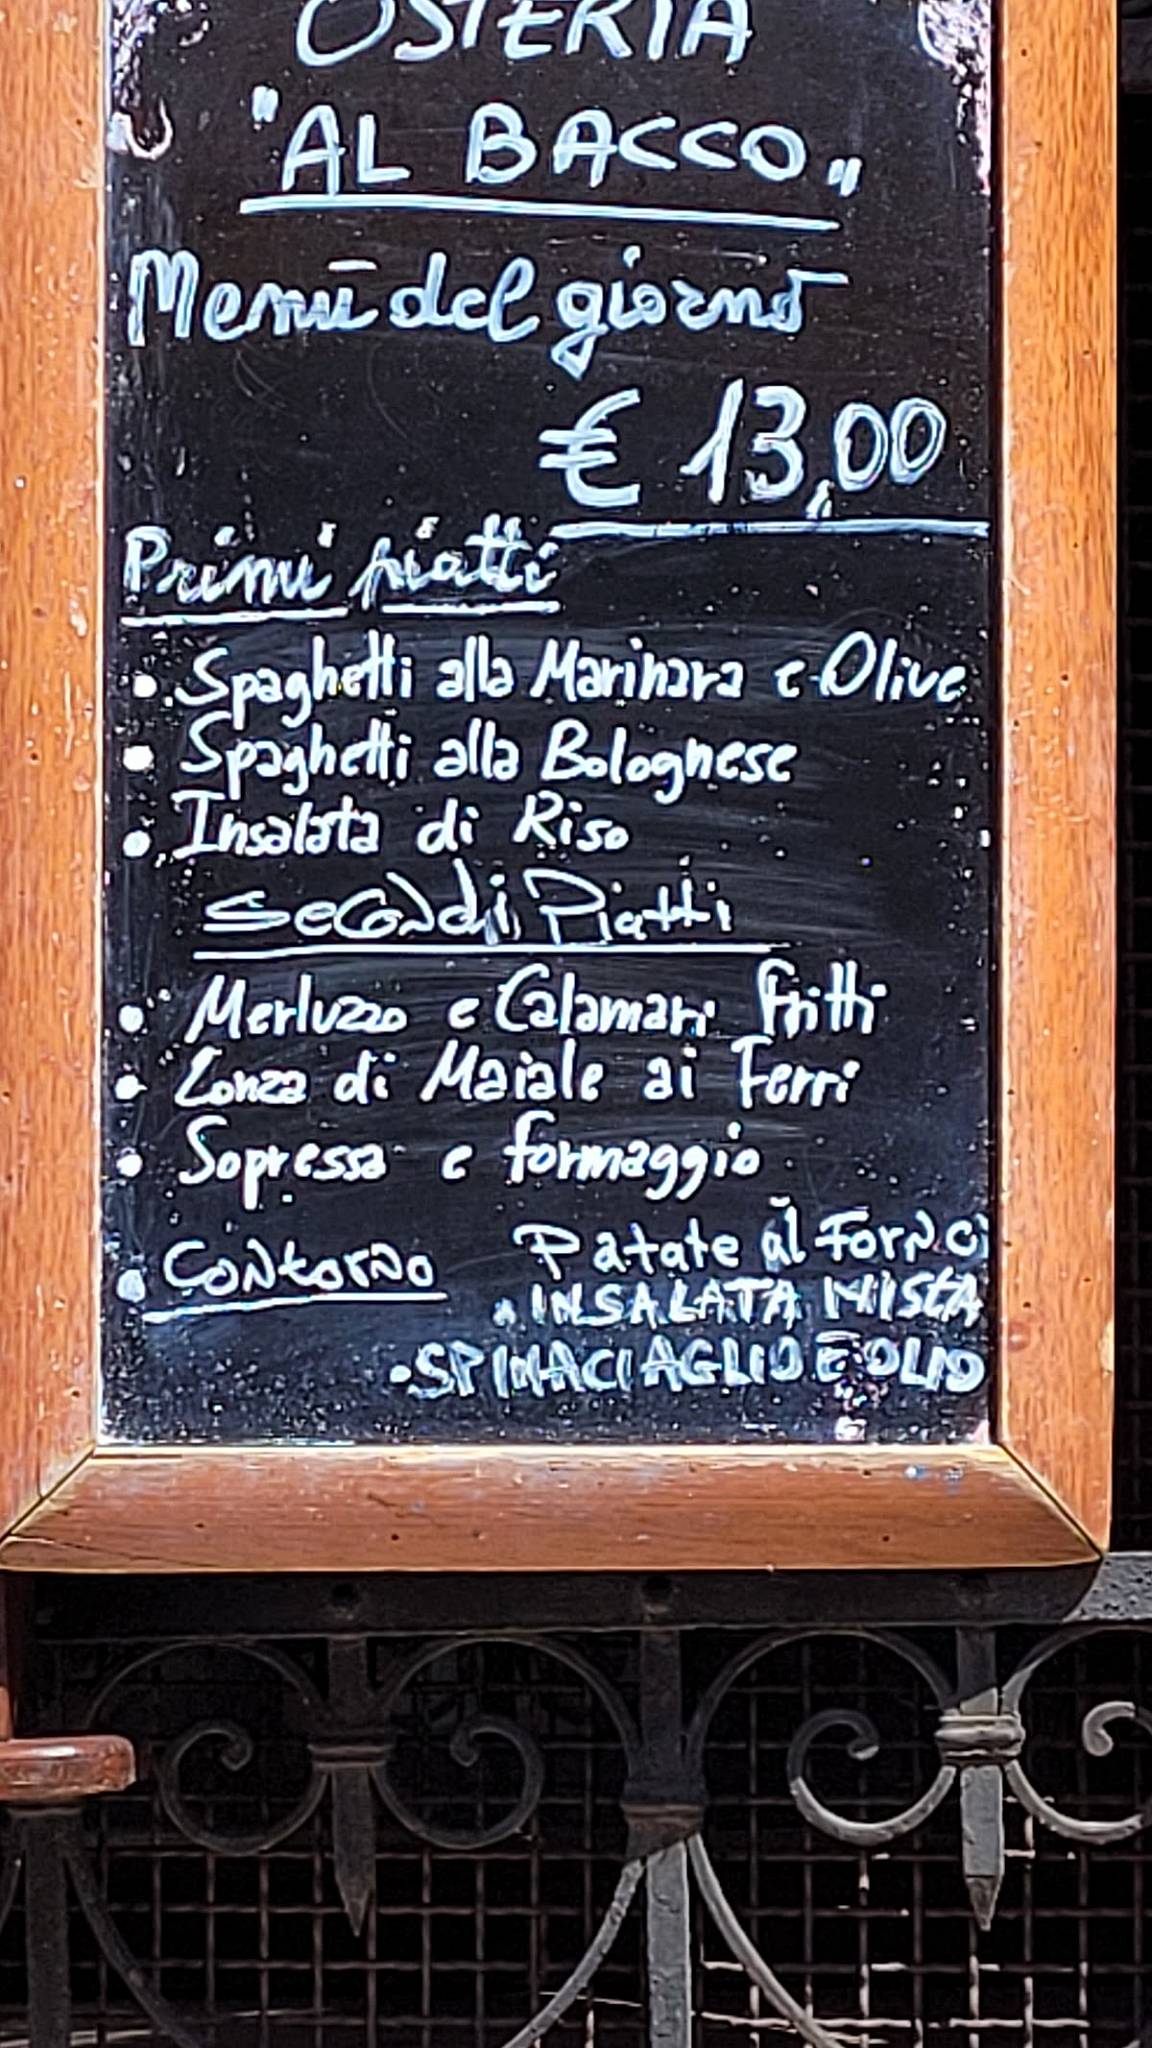 OSTERIA
"AL BACCO"
Menù del giorno
€ 13,00
Primi piatti
• Spaghetti alla Marinara e Olive
• Spaghetti alla Bolognese
• Insalata di Riso
Secondi Piatti
• Merluzzo e Calamari fritti
• Lonza di Maiale ai Ferri
• Sopressa e formaggio
• Contorno Patate al Forno
• INSALATA MISTA
• SPINACI AGLIO E OLIO